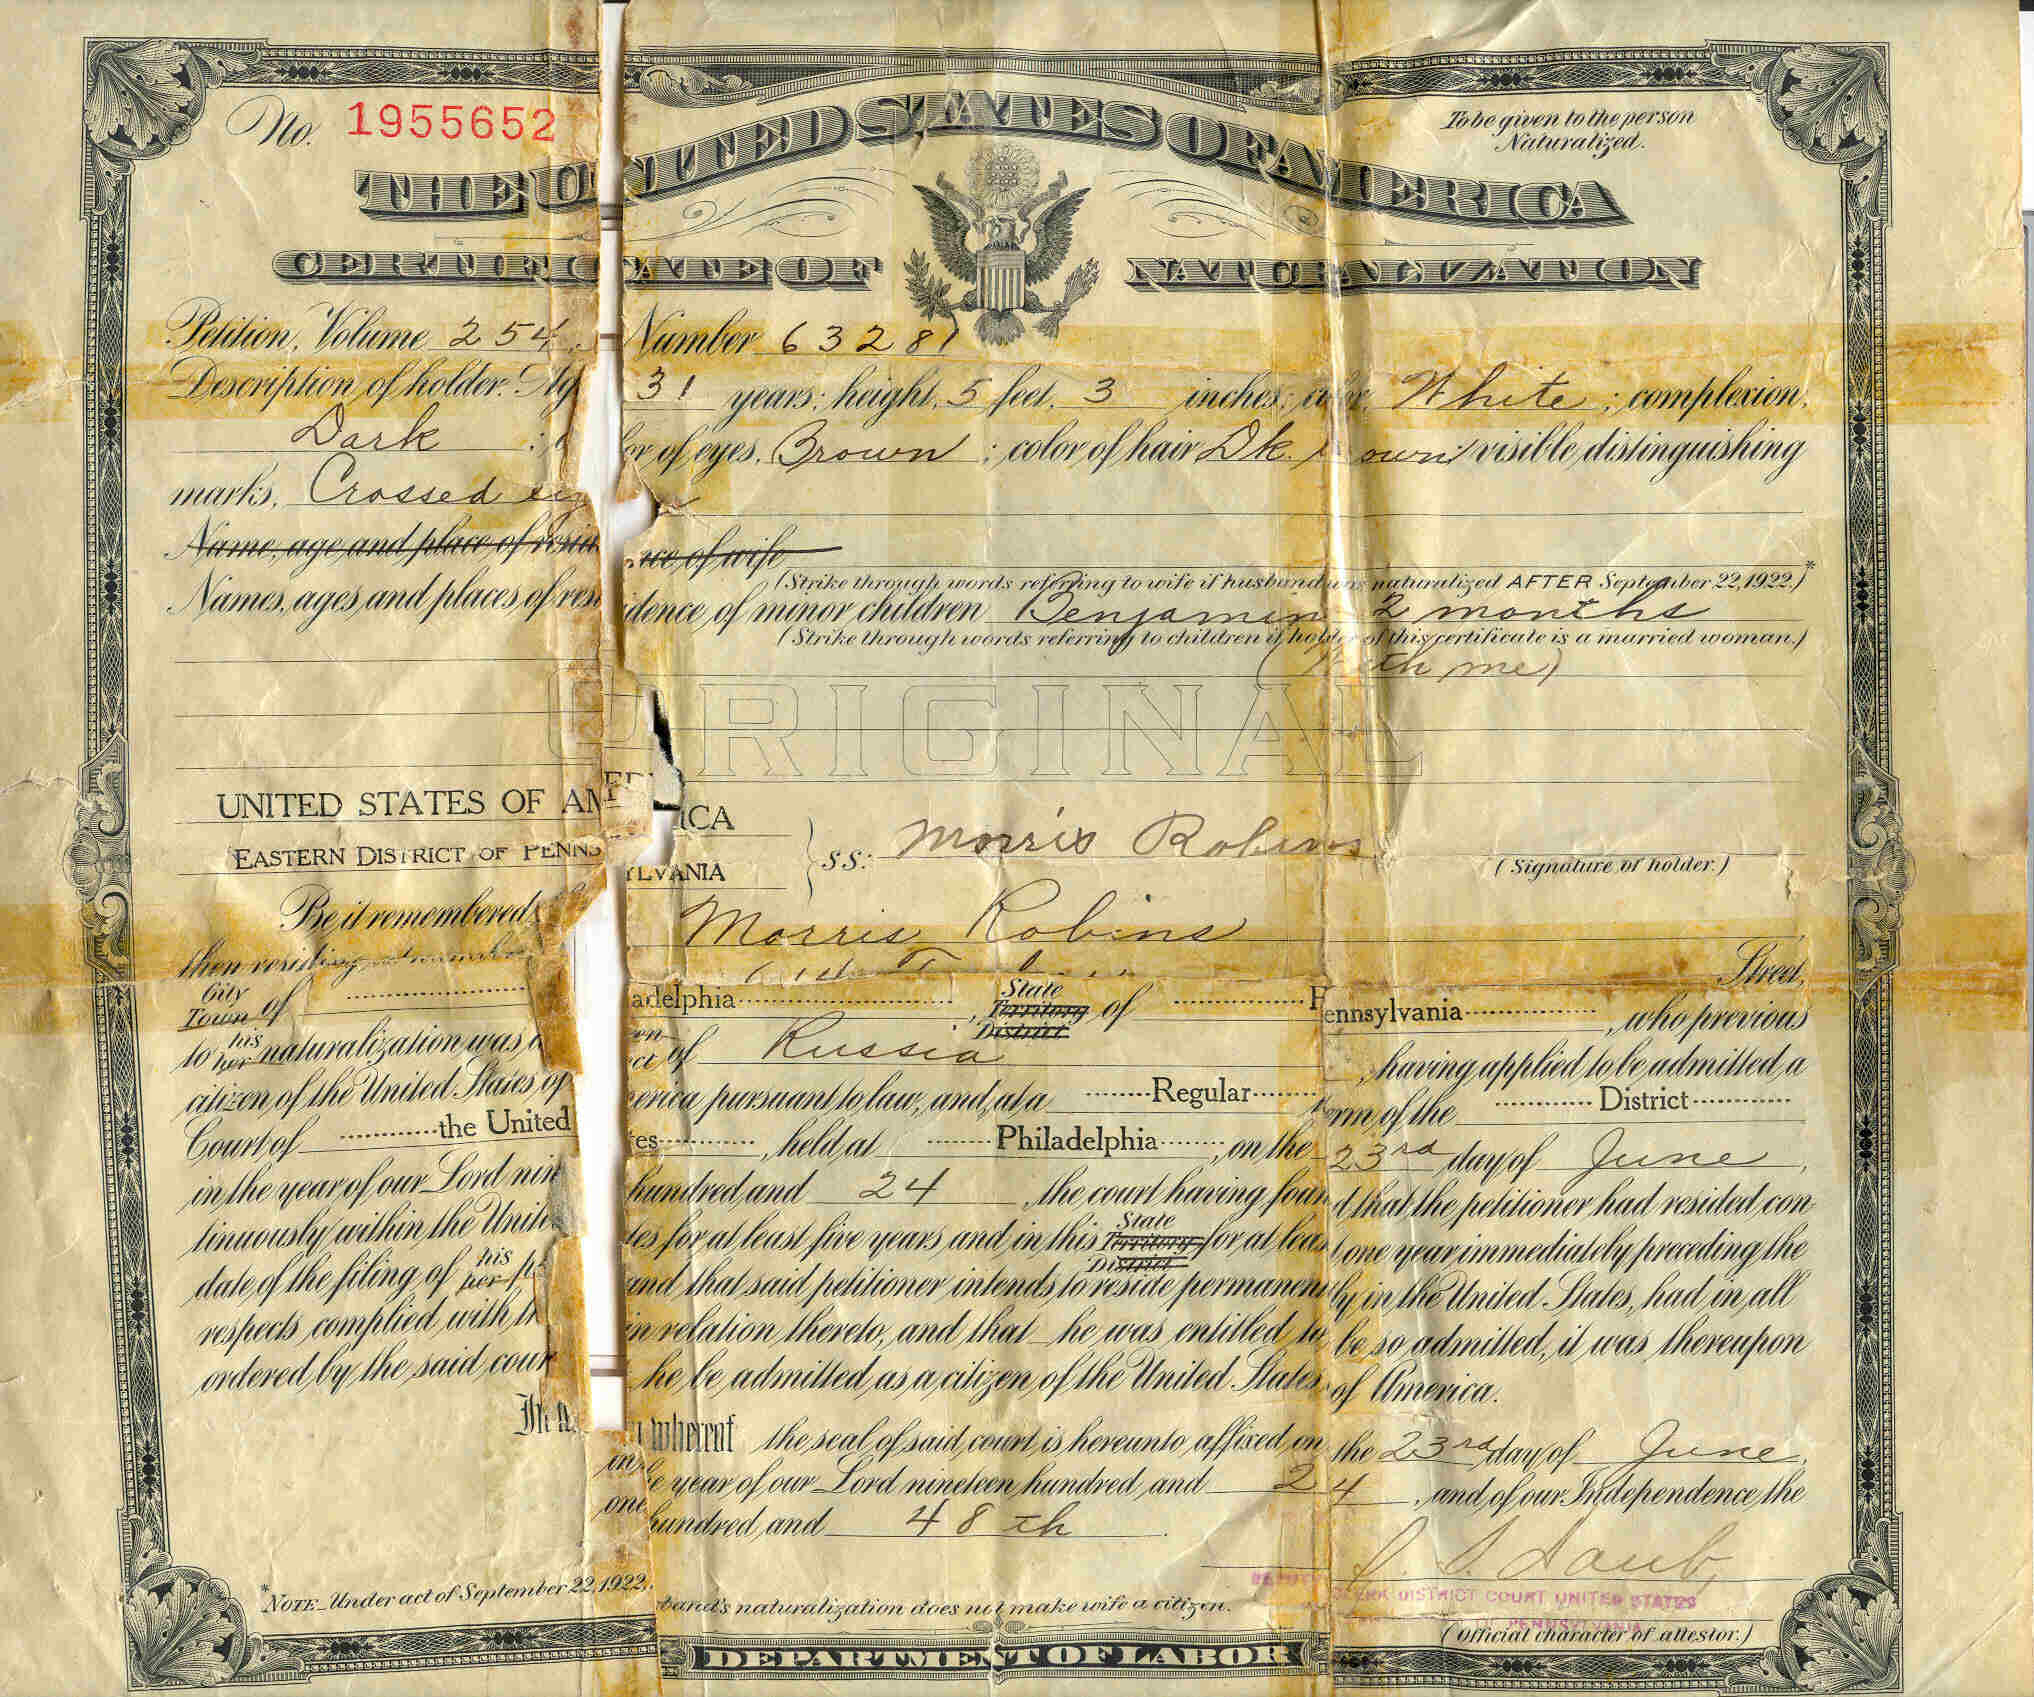 No. 1955652
To be given to the person
Naturalized.
THE UNITED STATES OF AMERICA
CERTIFICATE OF NATURALIZATION
Petition, Volume 254, Number 63281
Description of holder: Age 31 years; height, 5 feet, 3 inches; color, White; complexion,
Dark; color of eyes, Brown; color of hair Dk. Brown; visible distinguishing
marks, Crossed eyes
Name, age and place of residence of wife
(Strike through words referring to wife if husband was naturalized AFTER September 22, 1922.)*
Names, ages and places of residence of minor children Benjamin 2 months
(Strike through words referring to children if holder of this certificate is a married woman.)
(With me)
ORIGINAL
UNITED STATES OF AMERICA
EASTERN DISTRICT OF PENNSYLVANIA
ss: Morris Robins
(Signature of holder.)
Be it remembered, Morris Robins
then residing at number Street,
City
Town of adelphia, State
Territory
District of Pennsylvania, who previous
to his
her naturalization was a ct of Russia, having applied to be admitted a
citizen of the United States of erica pursuant to law, and, at a Regular term of the District
Court of the United tes, held at Philadelphia, on the 23rd day of June,
in the year of our Lord nin hundred and 24, the court having found that the petitioner had resided con
tinuously within the Unit tes for at least five years and in this State
Territory
District for at least one year immediately preceding the
date of the filing of his
her p and that said petitioner intends to reside permanently in the United States, had in all
respects complied with th in relation thereto, and that he was entitled to be so admitted, it was thereupon
ordered by the said court he be admitted as a citizen of the United States of America.
In whereof the seal of said court is hereunto affixed on the 23rd day of June,
in the year of our Lord nineteen hundred and 24, and of our Independence the
one hundred and 48th.
DISTRICT COURT UNITED STATES
PENNSYLVANIA
(Official character of attestor.)
*NOTE_Under act of September 22, 1922, band's naturalization does not make wife a citizen.
DEPARTMENT OF LABOR